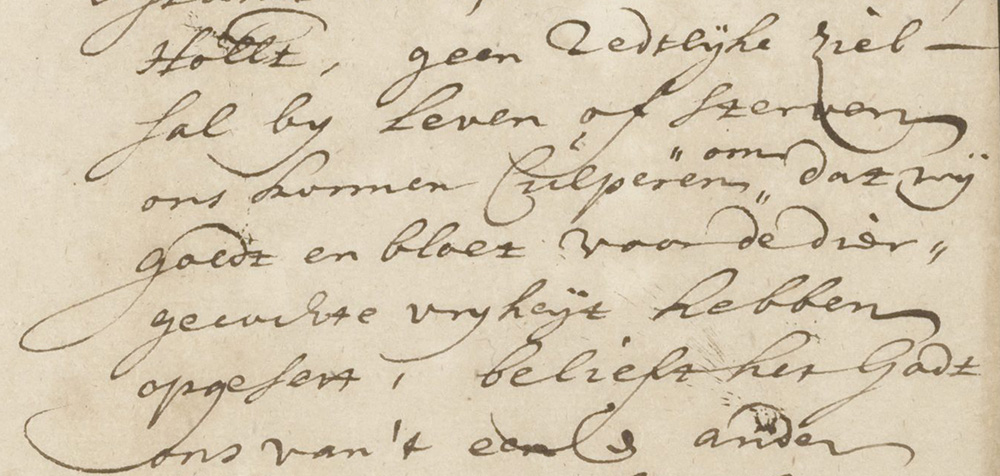 Hollt, geen Redtlijke ziel
sal by leven of sterven
ons konnen Culperen, om dat wij
goedt en bloet voor de dier„
gecochte vryheijt hebben
opgeset, belieft het Godt
ons van't een & ander